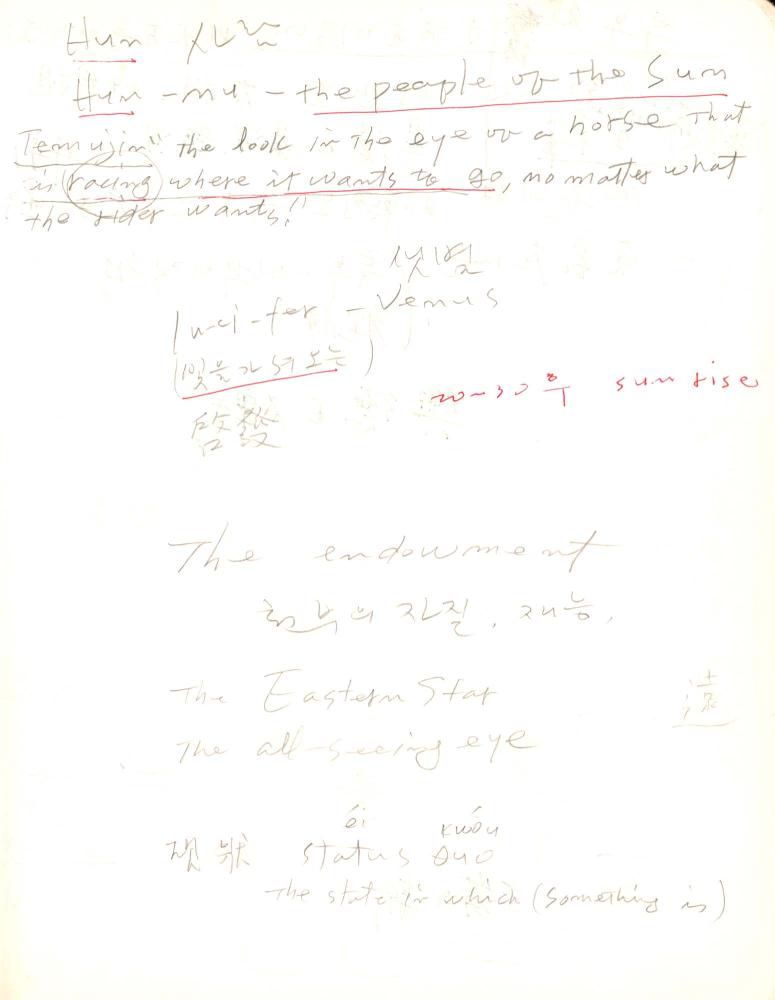 Hun 사람
Hun-nu - the people of the Sun
Temujin" the look in the eye of a horse that
is racing where it wants to go, no matter what
the rider wants!"
샛별
luci-fer - Venus
(빛을 가져오는)
20~30分 sun rise
啓發
The endowment
천부의 자질, 재능,
The Eastern Star
遠
The all-seeing eye
éi kwóu
현狀 status Quo
The state in which (something is)